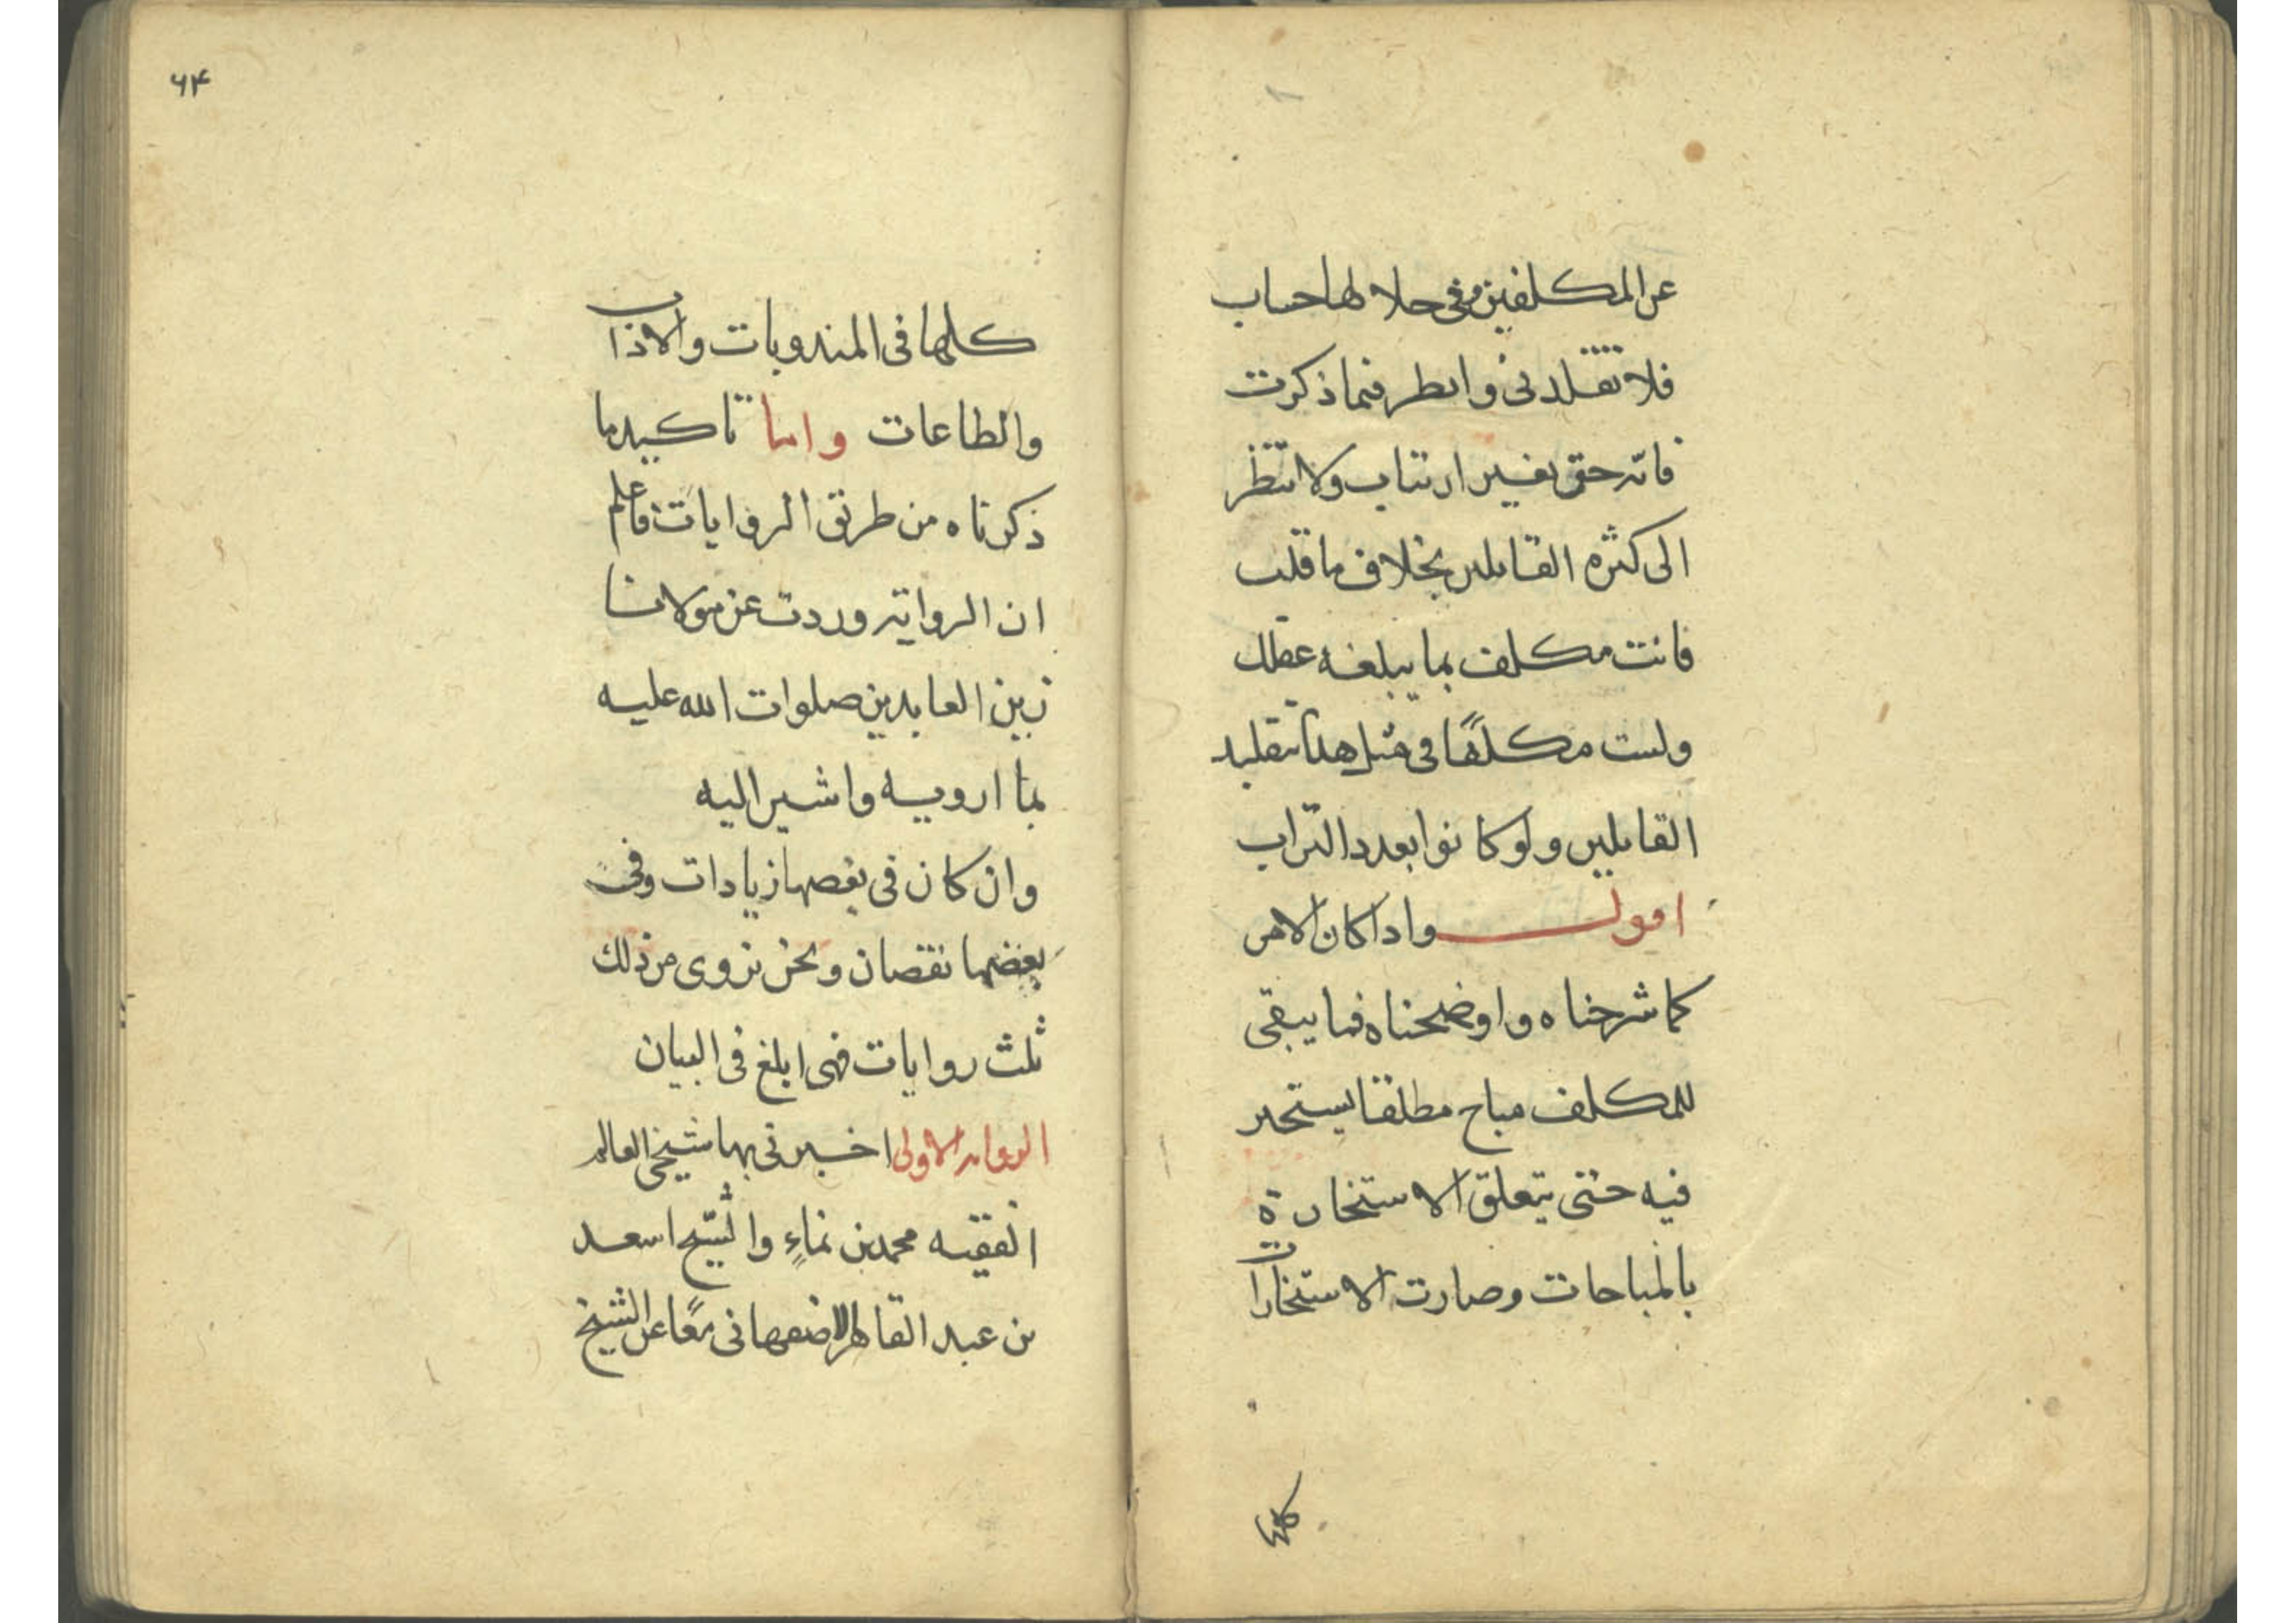 عن المكلفين وفي حلالها حساب
فلا تقلدني وانظر فيما ذكرت
فانه حق بغير ارتياب ولا تنظر
الى كثره القائلين بخلاف ما قلت
فانت مكلف بما يبلغه عقلك
ولست مكلفًا في مثل هذا بتقليد
القايلين ولو كانوا بعدد التراب
اقول واذا كان الامر
كما شرحناه واوضحناه فما يبقى
للمكلف مباح مطلقا يستخير
فيه حتى يتعلق الاستخارة
بالمباحات وصارت الاستخارات
كلها
۶۴
كلها في المندوبات والاداب
والطاعات واما تاكيد ما
ذكرناه من طريق الروايات فاعلم
ان الرواية وردت عن مولانا
زين العابدين صلوات الله عليه
بما ارويه واشير اليه
وان كان في بعضها زيادات وفي
بعضها نقصان ونحن نروى من ذلك
ثلث روايات فهى ابلغ في البيان
الروايه الاولى اخبرني بها شيخي العالم
الفقيه محمد بن نماءٍ والشيخ اسعد
بن عبد القاهر الاصفهاني معًا عن الشيخ